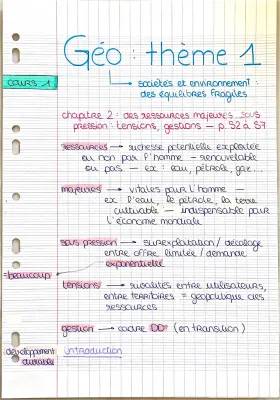 Géo : thème 1
COURS 1
→ sociétés et environnement :
des équilibres fragiles
chapitre 2 : des ressources majeures sous
pression : tensions, gestions — p. 52 à 57
ressources → richesse potentielle exploitée
ou non par l'homme — renouvelable
ou pas — ex : eau, pétrole, gaz...
majeures → vitales pour l'homme —
ex : l'eau, le pétrole, la terre
cultivable — indispensable pour
l'économie mondiale
sous pression → surexploitation / décalage
entre offre limitée / demande
exponentielle
=beaucoup
tensions → rivalités entre utilisateurs,
entre territoires = géopolitique des
ressources
gestion → cadre DD* (en transition)
développement
durable
introduction